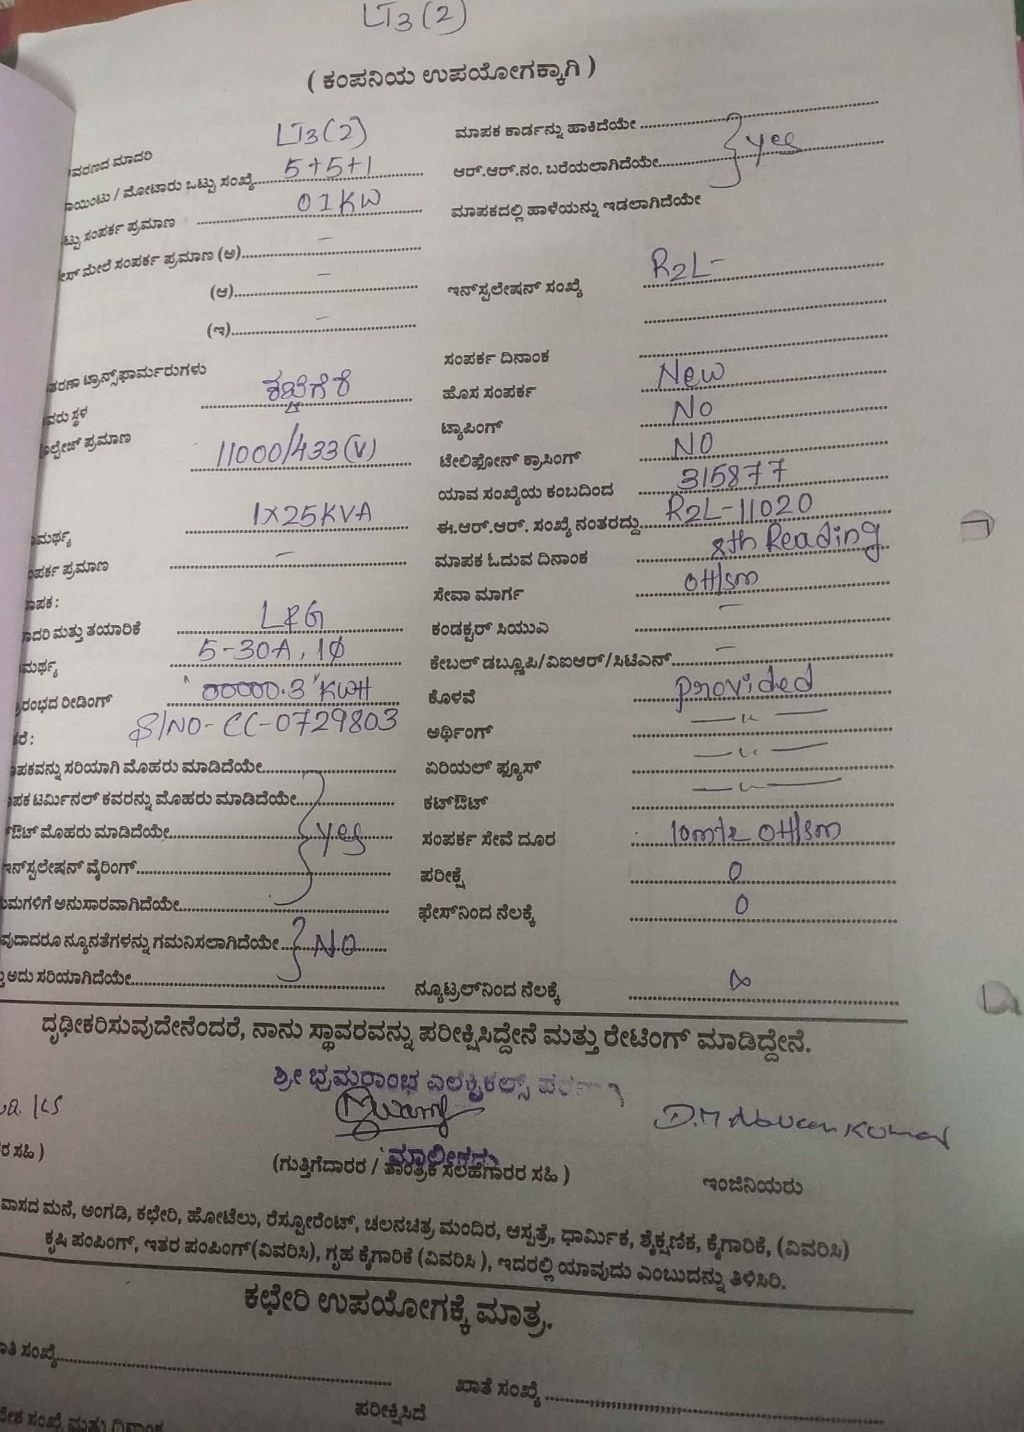 LT3(2)
( ಕಂಪನಿಯ ಉಪಯೋಗಕ್ಕಾಗಿ )
ವರಣದ ಮಾದರಿ LT3(2)
ಾಯಿಂಟು / ಮೋಟಾರು ಒಟ್ಟು ಸಂಖ್ಯೆ 5+5+1
ಟ್ಟು ಸಂಪರ್ಕ ಪ್ರಮಾಣ 01KW
ೇಸ್ ಮೇಲೆ ಸಂಪರ್ಕ ಪ್ರಮಾಣ (ಅ) –
(ಆ) –
(ಇ) –
ತರಣಾ ಟ್ರಾನ್ಸ್‌ಫಾರ್ಮರುಗಳು
ವರು ಸ್ಥಳ
ೋಲ್ಟೇಜ್ ಪ್ರಮಾಣ 11000/433(V)
ಾಮರ್ಥ್ಯ 1X25KVA
ಂಪರ್ಕ ಪ್ರಮಾಣ –
ಾಪಕ :
ಾದರಿ ಮತ್ತು ತಯಾರಿಕೆ L&G
ಾಮರ್ಥ್ಯ 5-30A, 1Φ
್ರಾರಂಭದ ರೀಡಿಂಗ್ "00000.3" KWH
ರೆ : S/NO-CC-0729803
ಾಪಕವನ್ನು ಸರಿಯಾಗಿ ಮೊಹರು ಮಾಡಿದೆಯೇ
ಾಪಕ ಟರ್ಮಿನಲ್ ಕವರನ್ನು ಮೊಹರು ಮಾಡಿದೆಯೇ
ಔಟ್ ಮೊಹರು ಮಾಡಿದೆಯೇ yes
ಇನ್‌ಸ್ಟಲೇಷನ್ ವೈರಿಂಗ್
ಯಮಗಳಿಗೆ ಅನುಸಾರವಾಗಿದೆಯೇ
ವುದಾದರೂ ನ್ಯೂನತೆಗಳನ್ನು ಗಮನಿಸಲಾಗಿದೆಯೇ NO
ಅದು ಸರಿಯಾಗಿದೆಯೇ
ಮಾಪಕ ಕಾರ್ಡನ್ನು ಹಾಕಿದೆಯೇ
ಆರ್.ಆರ್.ನಂ. ಬರೆಯಲಾಗಿದೆಯೇ yes
ಮಾಪಕದಲ್ಲಿ ಹಾಳೆಯನ್ನು ಇಡಲಾಗಿದೆಯೇ
ಇನ್‌ಸ್ಟಲೇಷನ್ ಸಂಖ್ಯೆ R2L-
ಸಂಪರ್ಕ ದಿನಾಂಕ
ಹೊಸ ಸಂಪರ್ಕ New
ಟ್ಯಾಪಿಂಗ್ No
ಟೇಲಿಫೋನ್ ಕ್ರಾಸಿಂಗ್ NO
ಯಾವ ಸಂಖ್ಯೆಯ ಕಂಬದಿಂದ 315877
ಈ.ಆರ್.ಆರ್. ಸಂಖ್ಯೆ ನಂತರದ್ದು R2L-11020
ಮಾಪಕ ಓದುವ ದಿನಾಂಕ 8th Reading
ಸೇವಾ ಮಾರ್ಗ OH/sm
ಕಂಡಕ್ಟರ್ ಸಿಯುಎ –
ಕೇಬಲ್ ಡಬ್ಲೂಪಿ/ವಿಐಆರ್/ಸಿಟಿಎನ್ –
ಕೊಳವೆ provided
ಅರ್ಥಿಂಗ್ —"—
ಏರಿಯಲ್ ಫ್ಯೂಸ್ —"—
ಕಟ್‌ಔಟ್ —"—
ಸಂಪರ್ಕ ಸೇವೆ ದೂರ 10mtr OH/sm
ಪರೀಕ್ಷೆ 0
ಫೇಸ್‌ನಿಂದ ನೆಲಕ್ಕೆ 0
ನ್ಯೂಟ್ರಲ್‌ನಿಂದ ನೆಲಕ್ಕೆ ∞
ದೃಢೀಕರಿಸುವುದೇನೆಂದರೆ, ನಾನು ಸ್ಥಾವರವನ್ನು ಪರೀಕ್ಷಿಸಿದ್ದೇನೆ ಮತ್ತು ರೇಟಿಂಗ್ ಮಾಡಿದ್ದೇನೆ.
ಶ್ರೀ ಭ್ರಮರಾಂಭ ಎಲಕ್ಟ್ರಿಕಲ್ಸ್
ಮಾಲೀಕರು
ರ ಸಹಿ )
(ಗುತ್ತಿಗೆದಾರರ / ತಾಂತ್ರಿಕ ಸಲಹೆಗಾರರ ಸಹಿ )
ಇಂಜಿನಿಯರು
ವಾಸದ ಮನೆ, ಅಂಗಡಿ, ಕಛೇರಿ, ಹೋಟೆಲು, ರೆಸ್ಟೋರೆಂಟ್, ಚಲನಚಿತ್ರ ಮಂದಿರ, ಆಸ್ಪತ್ರೆ, ಧಾರ್ಮಿಕ, ಶೈಕ್ಷಣಿಕ, ಕೈಗಾರಿಕೆ, (ವಿವರಿಸಿ)
ಕೃಷಿ ಪಂಪಿಂಗ್, ಇತರ ಪಂಪಿಂಗ್(ವಿವರಿಸಿ), ಗೃಹ ಕೈಗಾರಿಕೆ (ವಿವರಿಸಿ ), ಇದರಲ್ಲಿ ಯಾವುದು ಎಂಬುದನ್ನು ತಿಳಿಸಿರಿ.
ಕಛೇರಿ ಉಪಯೋಗಕ್ಕೆ ಮಾತ್ರ.
ಾತಿ ಸಂಖ್ಯೆ
ಖಾತೆ ಸಂಖ್ಯೆ
ಪರೀಕ್ಷಿಸಿದೆ